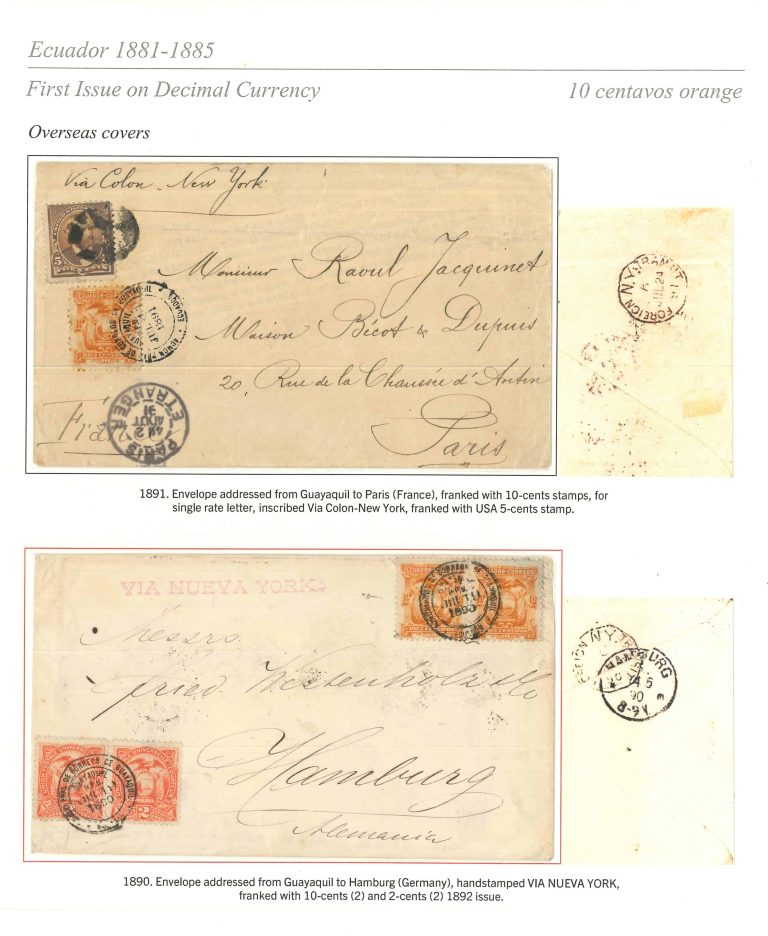 Ecuador 1881-1885
First Issue on Decimal Currency
10 centavos orange
Overseas covers
Via Colon - New York
5
ECUADOR
1891
Monsieur Raoul Jacquinet
Maison Bécot & Dupuis
20, Rue de la Chaussée d'Antin
Paris
France
PARIS
2
AOUT
91
ETRANGER
N.Y. TRANSIT
JUL 24
91
FOREIGN
1891. Envelope addressed from Guayaquil to Paris (France), franked with 10-cents stamps, for
single rate letter, inscribed Via Colon-New York, franked with USA 5-cents stamp.
VIA NUEVA YORK.
ECUADOR-CORREOS
1890
Messrs
Hamburg
Alemania
2
N.Y.
HAMBURG
5
90
8-9V
1890. Envelope addressed from Guayaquil to Hamburg (Germany), handstamped VIA NUEVA YORK,
franked with 10-cents (2) and 2-cents (2) 1892 issue.